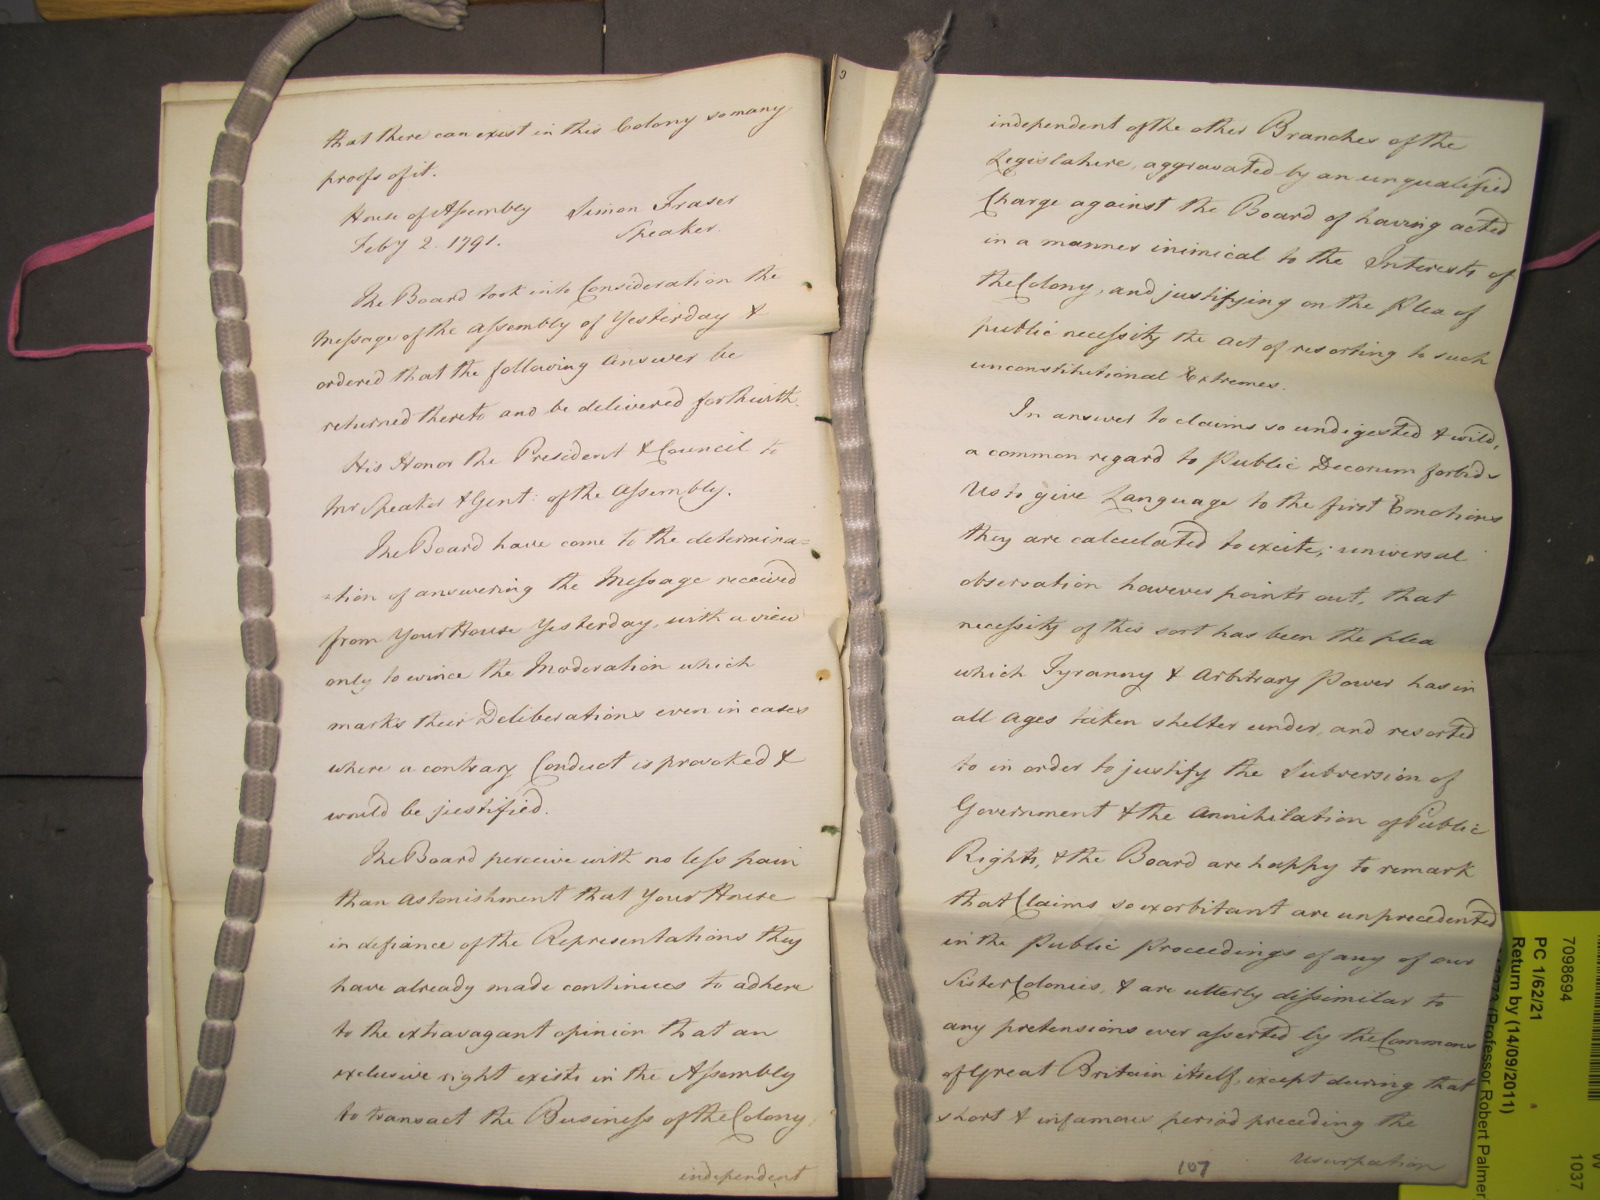 that there can exist in this Colony so many
proofs of it.
House of Assembly Simon Fraser
Feby 2. 1791. Speaker.
The Board took into Consideration the
Message of the Assembly of Yesterday &
ordered that the following Answer be
returned thereto and be delivered forthwith.
His Honor the President & Council to
Mr Speaker & Gent: of the Assembly.
The Board have come to the determina=
=tion of answering the Message received
from Your House Yesterday, with a view
only to evince the Moderation which
marks their Deliberations even in cases
where a contrary Conduct is provoked &
would be justified.
The Board perceive with no less pain
than astonishment that Your House
in defiance of the Representations they
have already made continues to adhere
to the extravagant opinion that an
exclusive right exists in the Assembly
to transact the Business of the Colony
independent
3
independent of the other Branches of the
Legislature, aggravated by an unqualified
Charge against the Board of having acted
in a manner inimical to the Interests of
the Colony, and justifying on the Plea of
public necessity the act of resorting to such
unconstitutional Extremes.
In answer to claims so undigested & wild,
a common regard to Public Decorum forbids
Us to give Language to the first Emotions
they are calculated to excite; universal
observation however points out, that
necessity of this sort has been the plea
which Tyranny & Arbitrary Power has in
all Ages taken shelter under, and resorted
to in order to justify the Subversion of
Government & the Annihilation of Public
Rights, & the Board are happy to remark
that Claims so exorbitant are unprecedented
in the Public Proceedings of any of our
Sister Colonies, & are utterly dissimilar to
any pretensions ever asserted by the Commons
of Great Britain itself, except during that
short & infamous period preceding the
107 Usurpation
7098694
PC 1/62/21
Return by (14/09/2011)
(Professor Robert Palmer
1037